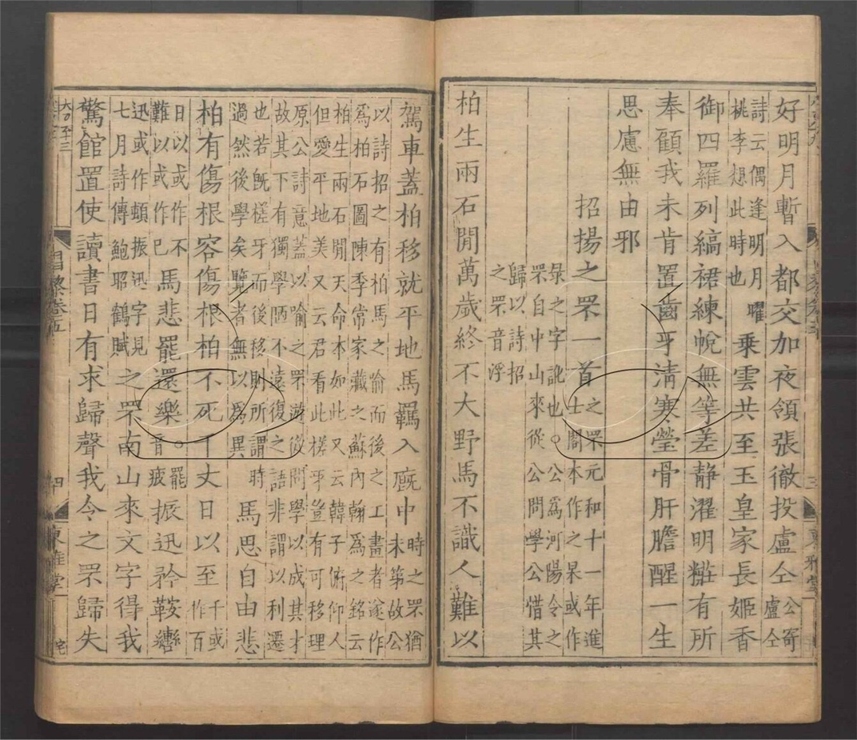 好明月暫入都交加夜領張徹投盧仝公寄盧仝
詩云偶逢明月曜桃李想此時也乘雲共至玉皇家長姬香
御四羅列縞裙練帨無等差靜濯明糚有所
奉顧我未肯置齒牙清寒瑩骨肝膽醒一生
思慮無由邪
招揚之罘一首之罘元和十一年進士閣本作之果或作
杲之字訛也公為河陽令之罘自中山來從公問學公惜其
歸以詩招之罘音浮
柏生兩石間萬歲終不大野馬不識人難以
駕車蓋柏移就平地馬羈入廐中時之罘猶未第故公
以詩招之有柏馬之喻而後之工畫者遂作
為柏石圖陳季常家藏之蘇內翰為之銘云
柏生兩石間天命本如此又云韓子俯仰人
但愛平地美又云君看此槎牙豈有可移理
原公詩意蓋以喻之罘遊從問學以成其才
故其下有獨學陋不遠復之語非謂以利遷
也若旣槎牙而後移則所謂時
過然後學矣覽者無以為異馬思自由悲
柏有傷根容傷根柏不死千丈日以至千或作百
日以或作不難以或作已馬悲罷還樂音疲罷振迅矜鞍轡
迅或作頓振迅字見七月詩傳鮑耶鶴賦之罘南山來文字得我
驚館置使讀書日有求歸聲我令之罘歸失
昌黎卷五
東雅堂